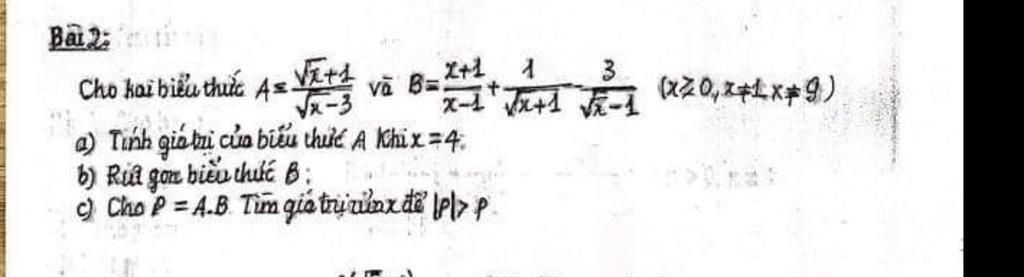 Bài 2:
Cho hai biểu thức A = (√x+1)/(√x-3) và B = (x+1)/(x-1) + 1/(√x+1) - 3/(√x-1) (x≥0, x≠1, x≠9)
a) Tính giá trị của biểu thức A khi x = 4.
b) Rút gọn biểu thức B;
c) Cho P = A.B. Tìm giá trị của x để |P| > P.